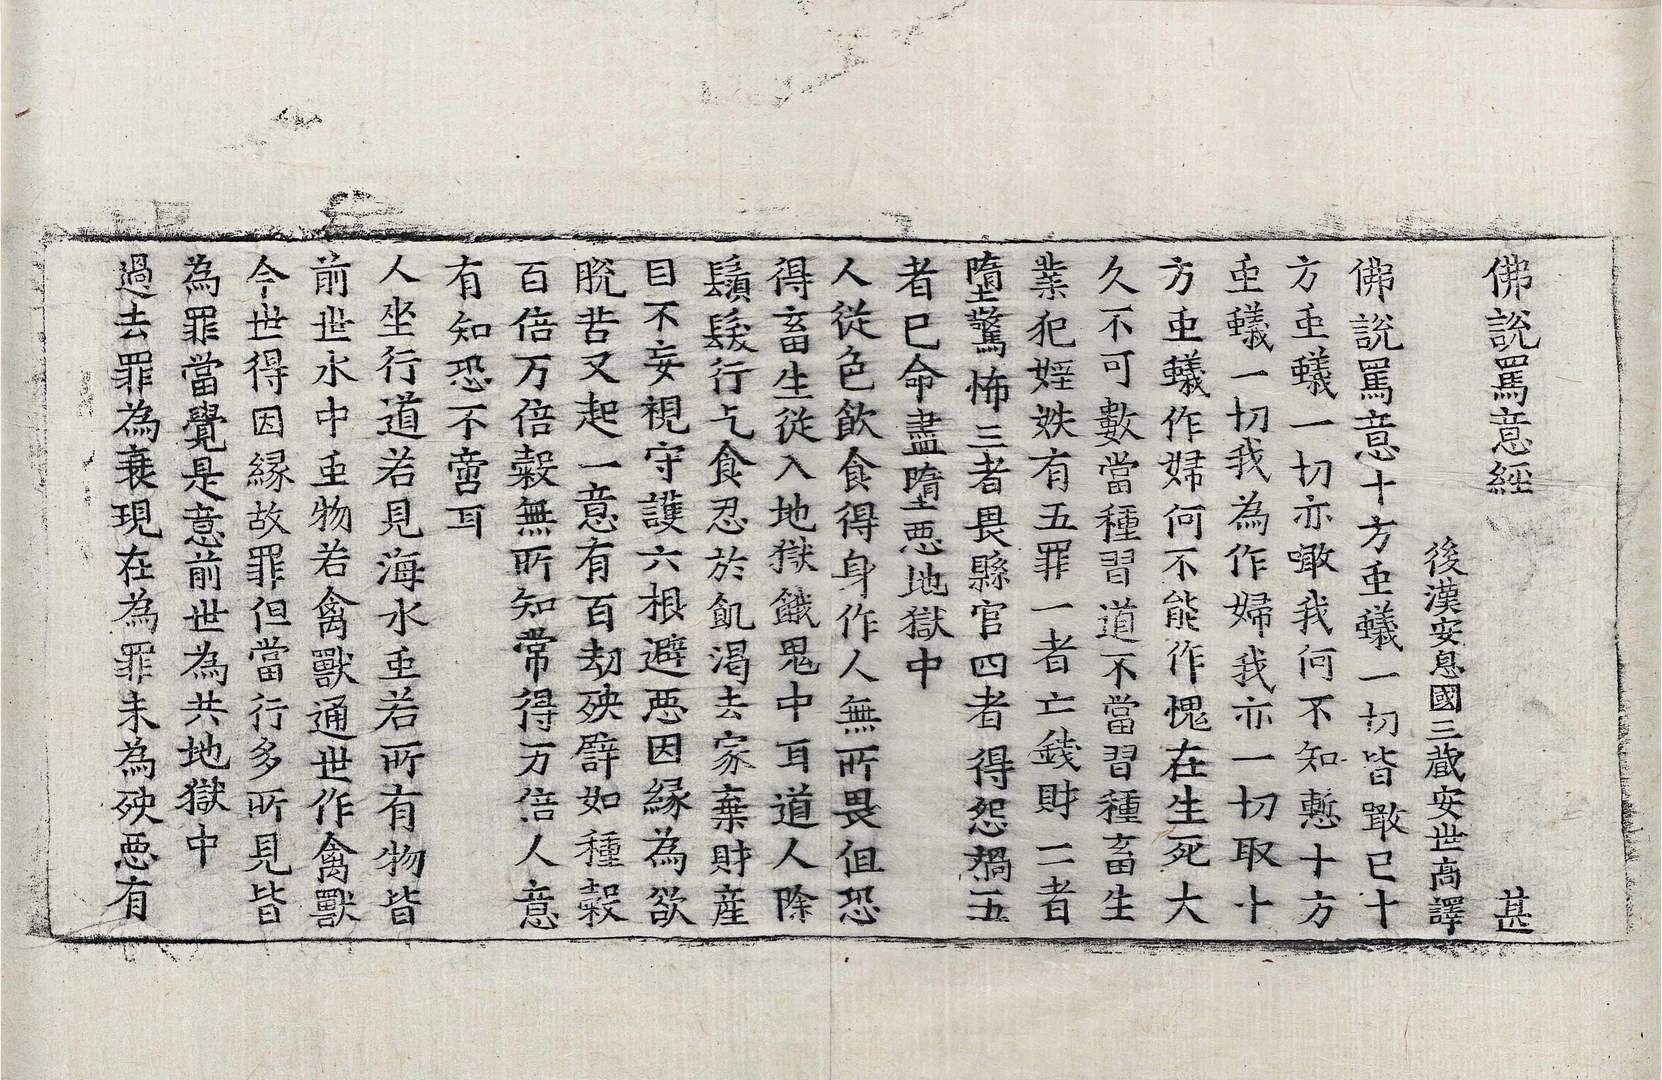 佛說罵意經 甚
後漢安息國三藏安世高譯
佛說罵意十方虫蟻一切皆噉已十
方虫蟻一切亦噉我何不知慙十方
虫蟻一切我為作婦我亦一切取十
方虫蟻作婦何不能作愧在生死大
久不可數當種習道不當習種畜生
業犯婬妷有五罪一者亡錢財二者
墮驚怖三者畏縣官四者得怨禍五
者已命盡墮惡地獄中
人從色飲食得身作人無所畏但恐
得畜生從入地獄餓鬼中耳道人除
鬚髮行乞食忍於飢渴去家棄財產
目不妄視守護六根避惡因緣為欲
脫苦又起一意有百劫殃譬如種穀
百倍万倍穀無所知常得万倍人意
有知恐不啻耳
人坐行道若見海水虫若所有物皆
前世水中虫物若禽獸通世作禽獸
今世得因緣故罪但當行多所見皆
為罪當覺是意前世為共地獄中
過去罪為衰現在為罪未為殃惡有